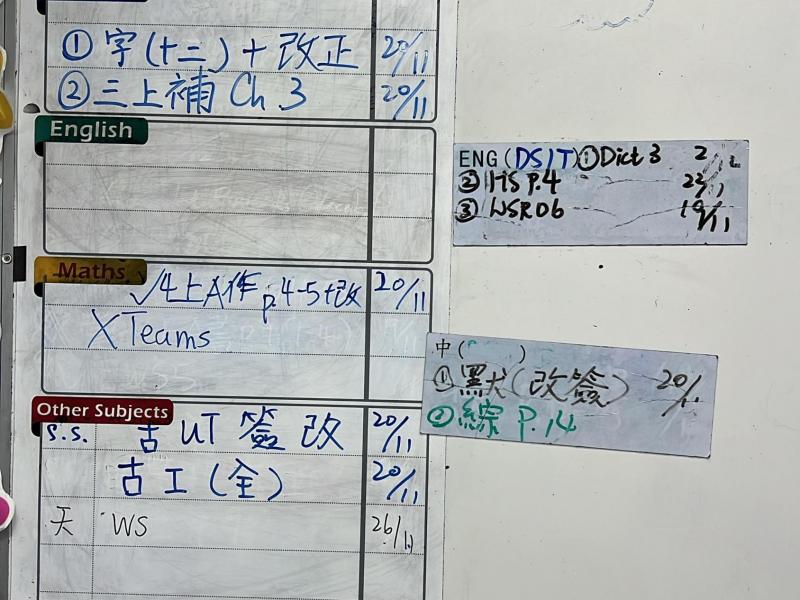 ① 字(十二)+改正 20/11
② 三上補 Ch 3 20/11
English
Maths
✓4上A作 p.4-5+改 20/11
X Teams
Other Subjects
S.S. 古 UT 簽 改 20/11
古工(全) 20/11
天 WS 26/11
ENG (DS/T) ① Dict 3 2/12
② P.4
③ WSR06 19/11
中( )
① 默(改簽) 20/11
② 綜 P.14